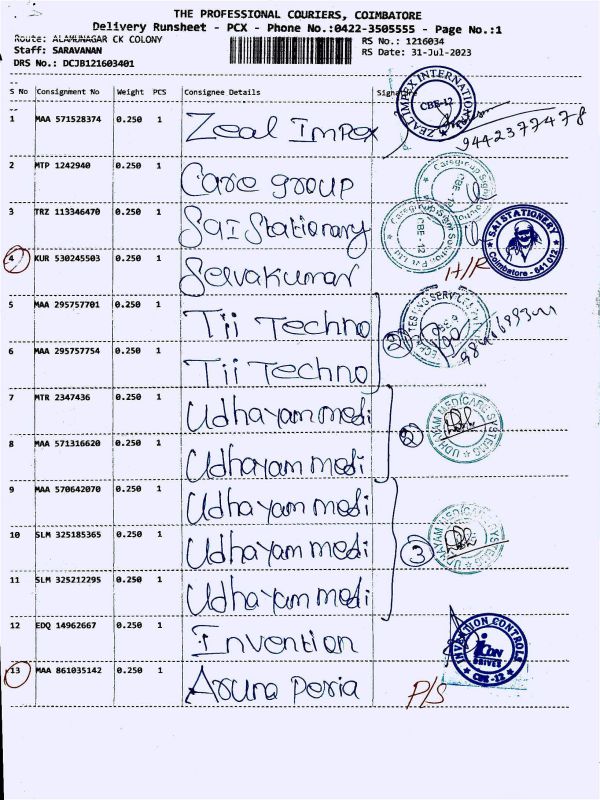 THE PROFESSIONAL COURIERS, COIMBATORE
Delivery Runsheet - PCX - Phone No.:0422-3505555 - Page No.:1
Route: ALAMUNAGAR CK COLONY
RS No.: 1216034
Staff: SARAVANAN
RS Date: 31-Jul-2023
DRS No.: DCJB121603401
S No Consignment No Weight PCS Consignee Details Signature
1 MAA 571528374 0.250 1 Zeal Impex
ZEAL IMPEX INTERNATIONAL CBE-12
2 MTP 1242940 0.250 1 Care group
CBE-12
3 TRZ 113346470 0.250 1 Sai Stationary
CBE-12
SAI STATIONERY Coimbatore - 641 012
4 KUR 530245503 0.250 1 Selvakumar H/R
5 MAA 295757701 0.250 1 Tii Techno
TESTING SERVICE
6 MAA 295757754 0.250 1 Tii Techno
2
7 MTR 2347436 0.250 1 Udhayam medi
8 MAA 571316620 0.250 1 Udhayam medi
2
UDHAYAM MEDICARE SYSTEMS
9 MAA 570642070 0.250 1 Udhayam medi
10 SLM 325185365 0.250 1 Udhayam medi
11 SLM 325212295 0.250 1 Udhayam medi
3
UDHAYAM MEDICARE SYSTEMS
12 EDQ 14962667 0.250 1 Invention
INVENTION CONTROLS CBE-12
13 MAA 861035142 0.250 1 Aruna peria P/S